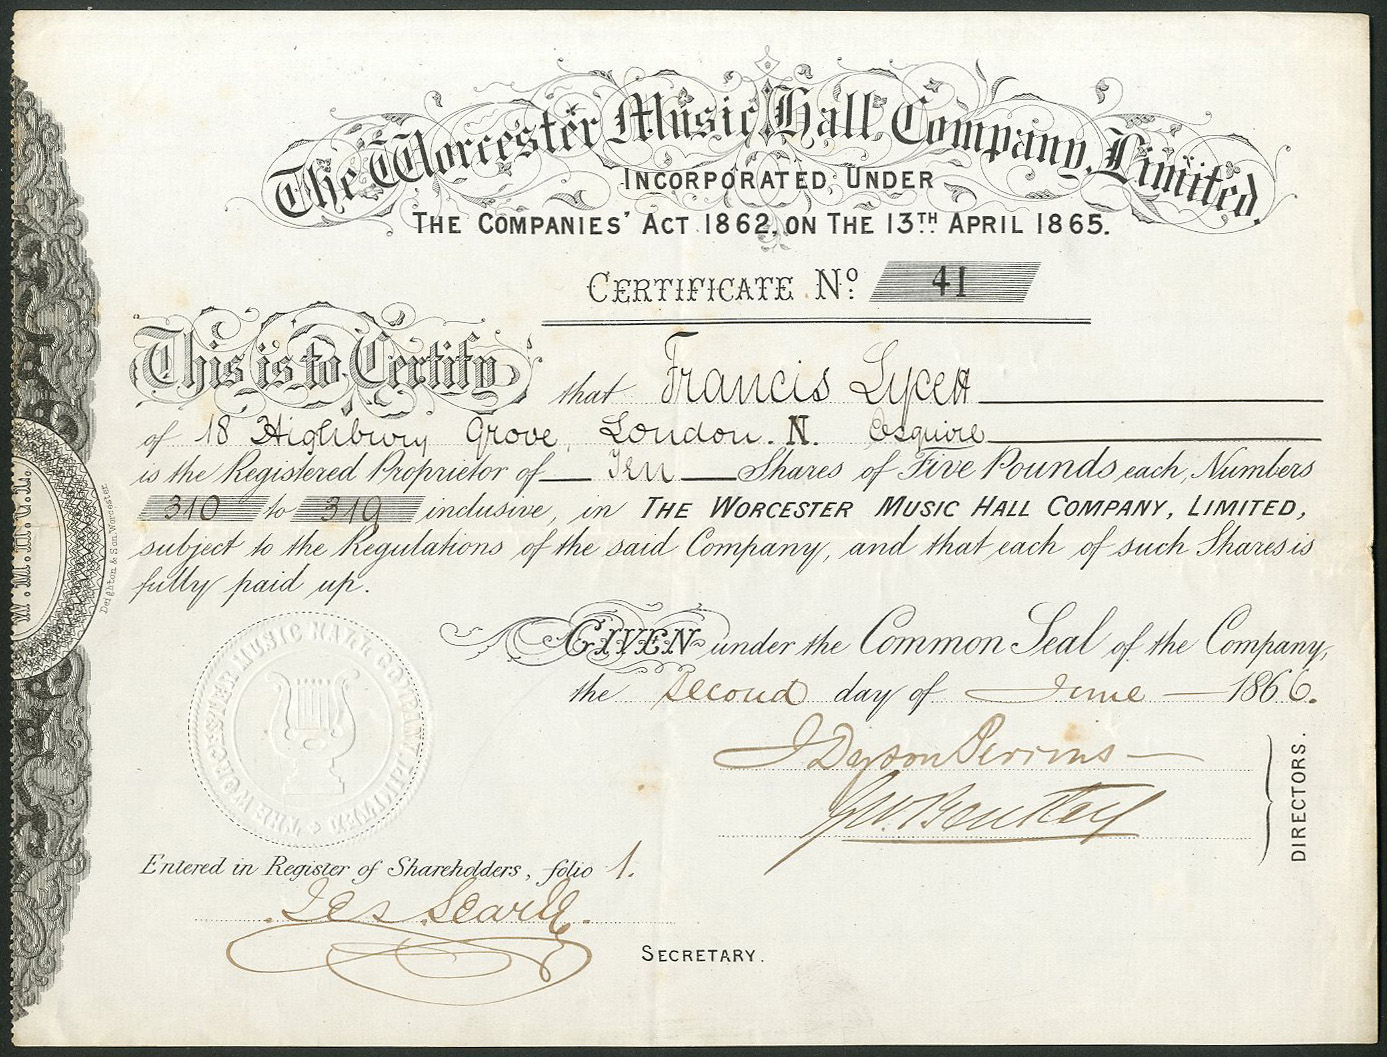 The Worcester Music Hall Company, Limited.
INCORPORATED UNDER
THE COMPANIES' ACT 1862, ON THE 13TH APRIL 1865.
CERTIFICATE No. 41
This is to Certify that Francis Lycett
of 18 Highbury Grove, London. N. Esquire
is the Registered Proprietor of Ten Shares of Five Pounds each, Numbers
310 to 319 inclusive, in THE WORCESTER MUSIC HALL COMPANY, LIMITED,
subject to the Regulations of the said Company, and that each of such Shares is
fully paid up.
GIVEN under the Common Seal of the Company,
the Second day of June 1866.
J Dyson Perrins
DIRECTORS.
THE WORCESTER MUSIC HALL COMPANY LIMITED
Entered in Register of Shareholders, folio 1.
SECRETARY.
W.M.H.C.L.
Deighton & Son, Worcester.